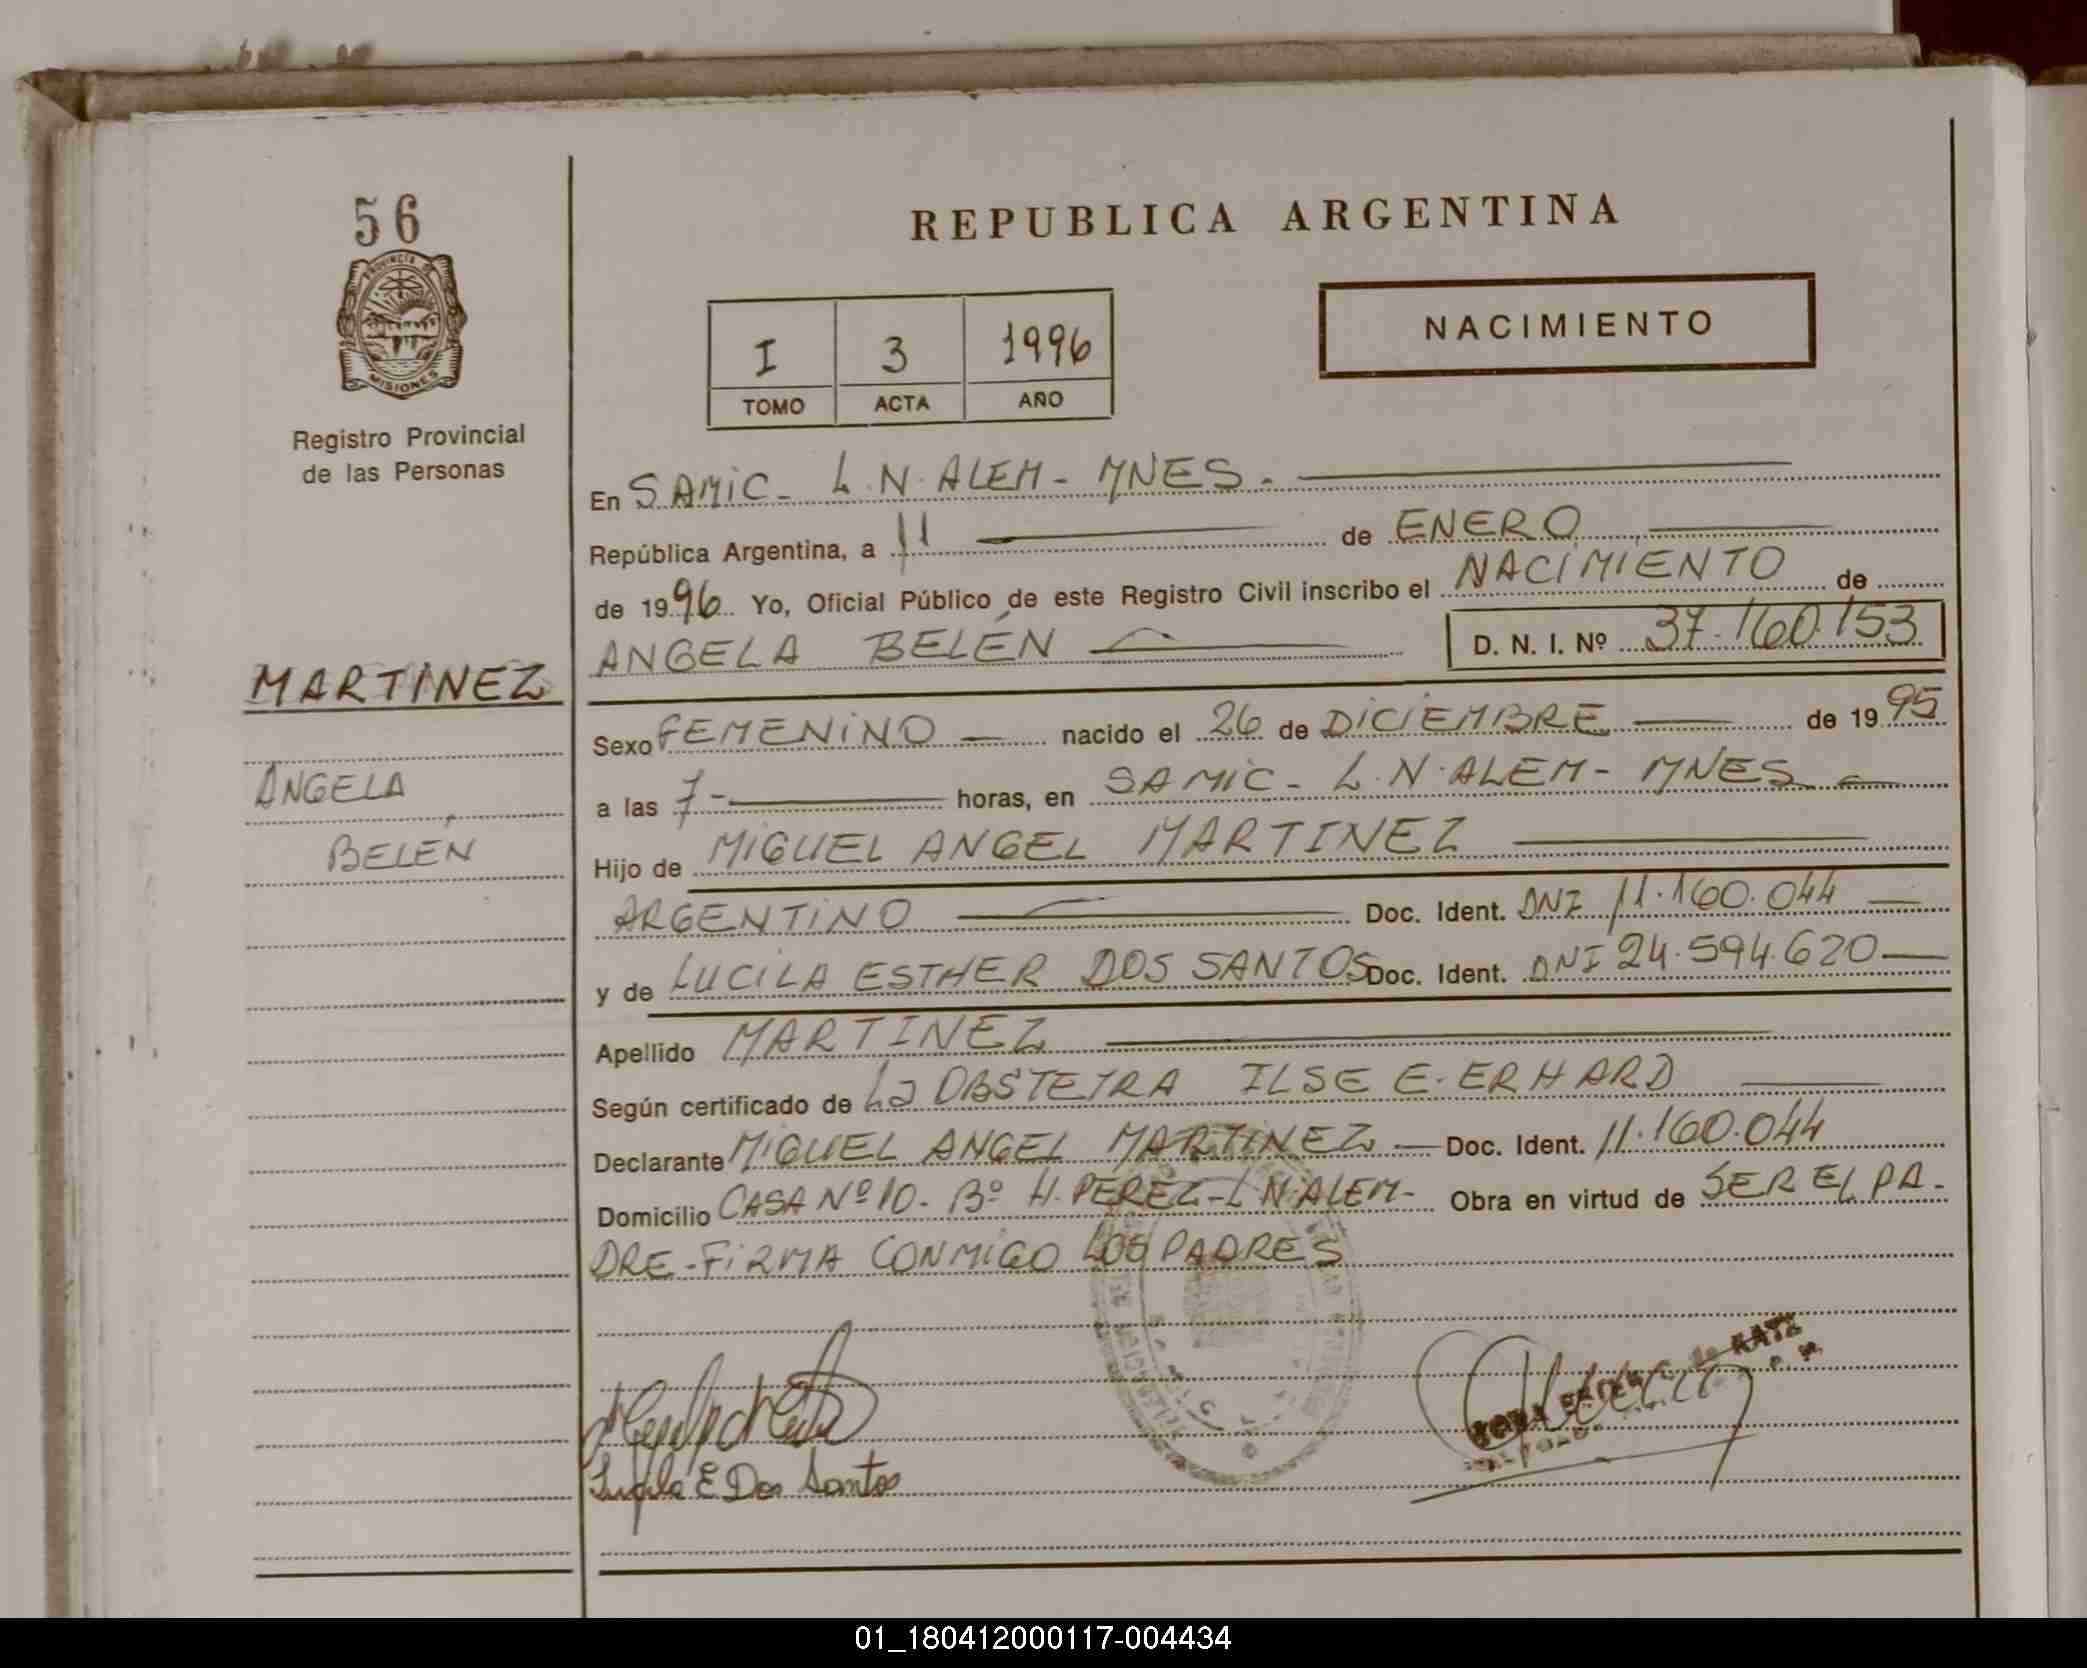 56
PROVINCIA DE
MISIONES
Registro Provincial
de las Personas
MARTINEZ
ANGELA
BELÉN
REPUBLICA ARGENTINA
NACIMIENTO
I 3 1996
TOMO ACTA AÑO
En SAMIC - L.N. ALEM - MNES.
República Argentina, a 11 de ENERO
de 1996 Yo, Oficial Público de este Registro Civil inscribo el NACIMIENTO de
ANGELA BELÉN D. N. I. Nº 37.160.153
Sexo FEMENINO nacido el 26 de DICIEMBRE de 1995
a las 7 - horas, en SAMIC - L.N. ALEM - MNES
Hijo de MIGUEL ANGEL MARTINEZ
ARGENTINO Doc. Ident. DNI 11.160.044
y de LUCILA ESTHER DOS SANTOS Doc. Ident. DNI 24.594.620
Apellido MARTINEZ
Según certificado de La OBSTETRA ILSE E. ERHARD
Declarante MIGUEL ANGEL MARTINEZ Doc. Ident. 11.160.044
Domicilio CASA Nº 10 - Bº H. PEREZ - L.N. ALEM - Obra en virtud de SER EL PA-
DRE - FIRMA CONMIGO LOS PADRES
de KATZ
Lucila E Dos Santos
01_180412000117-004434